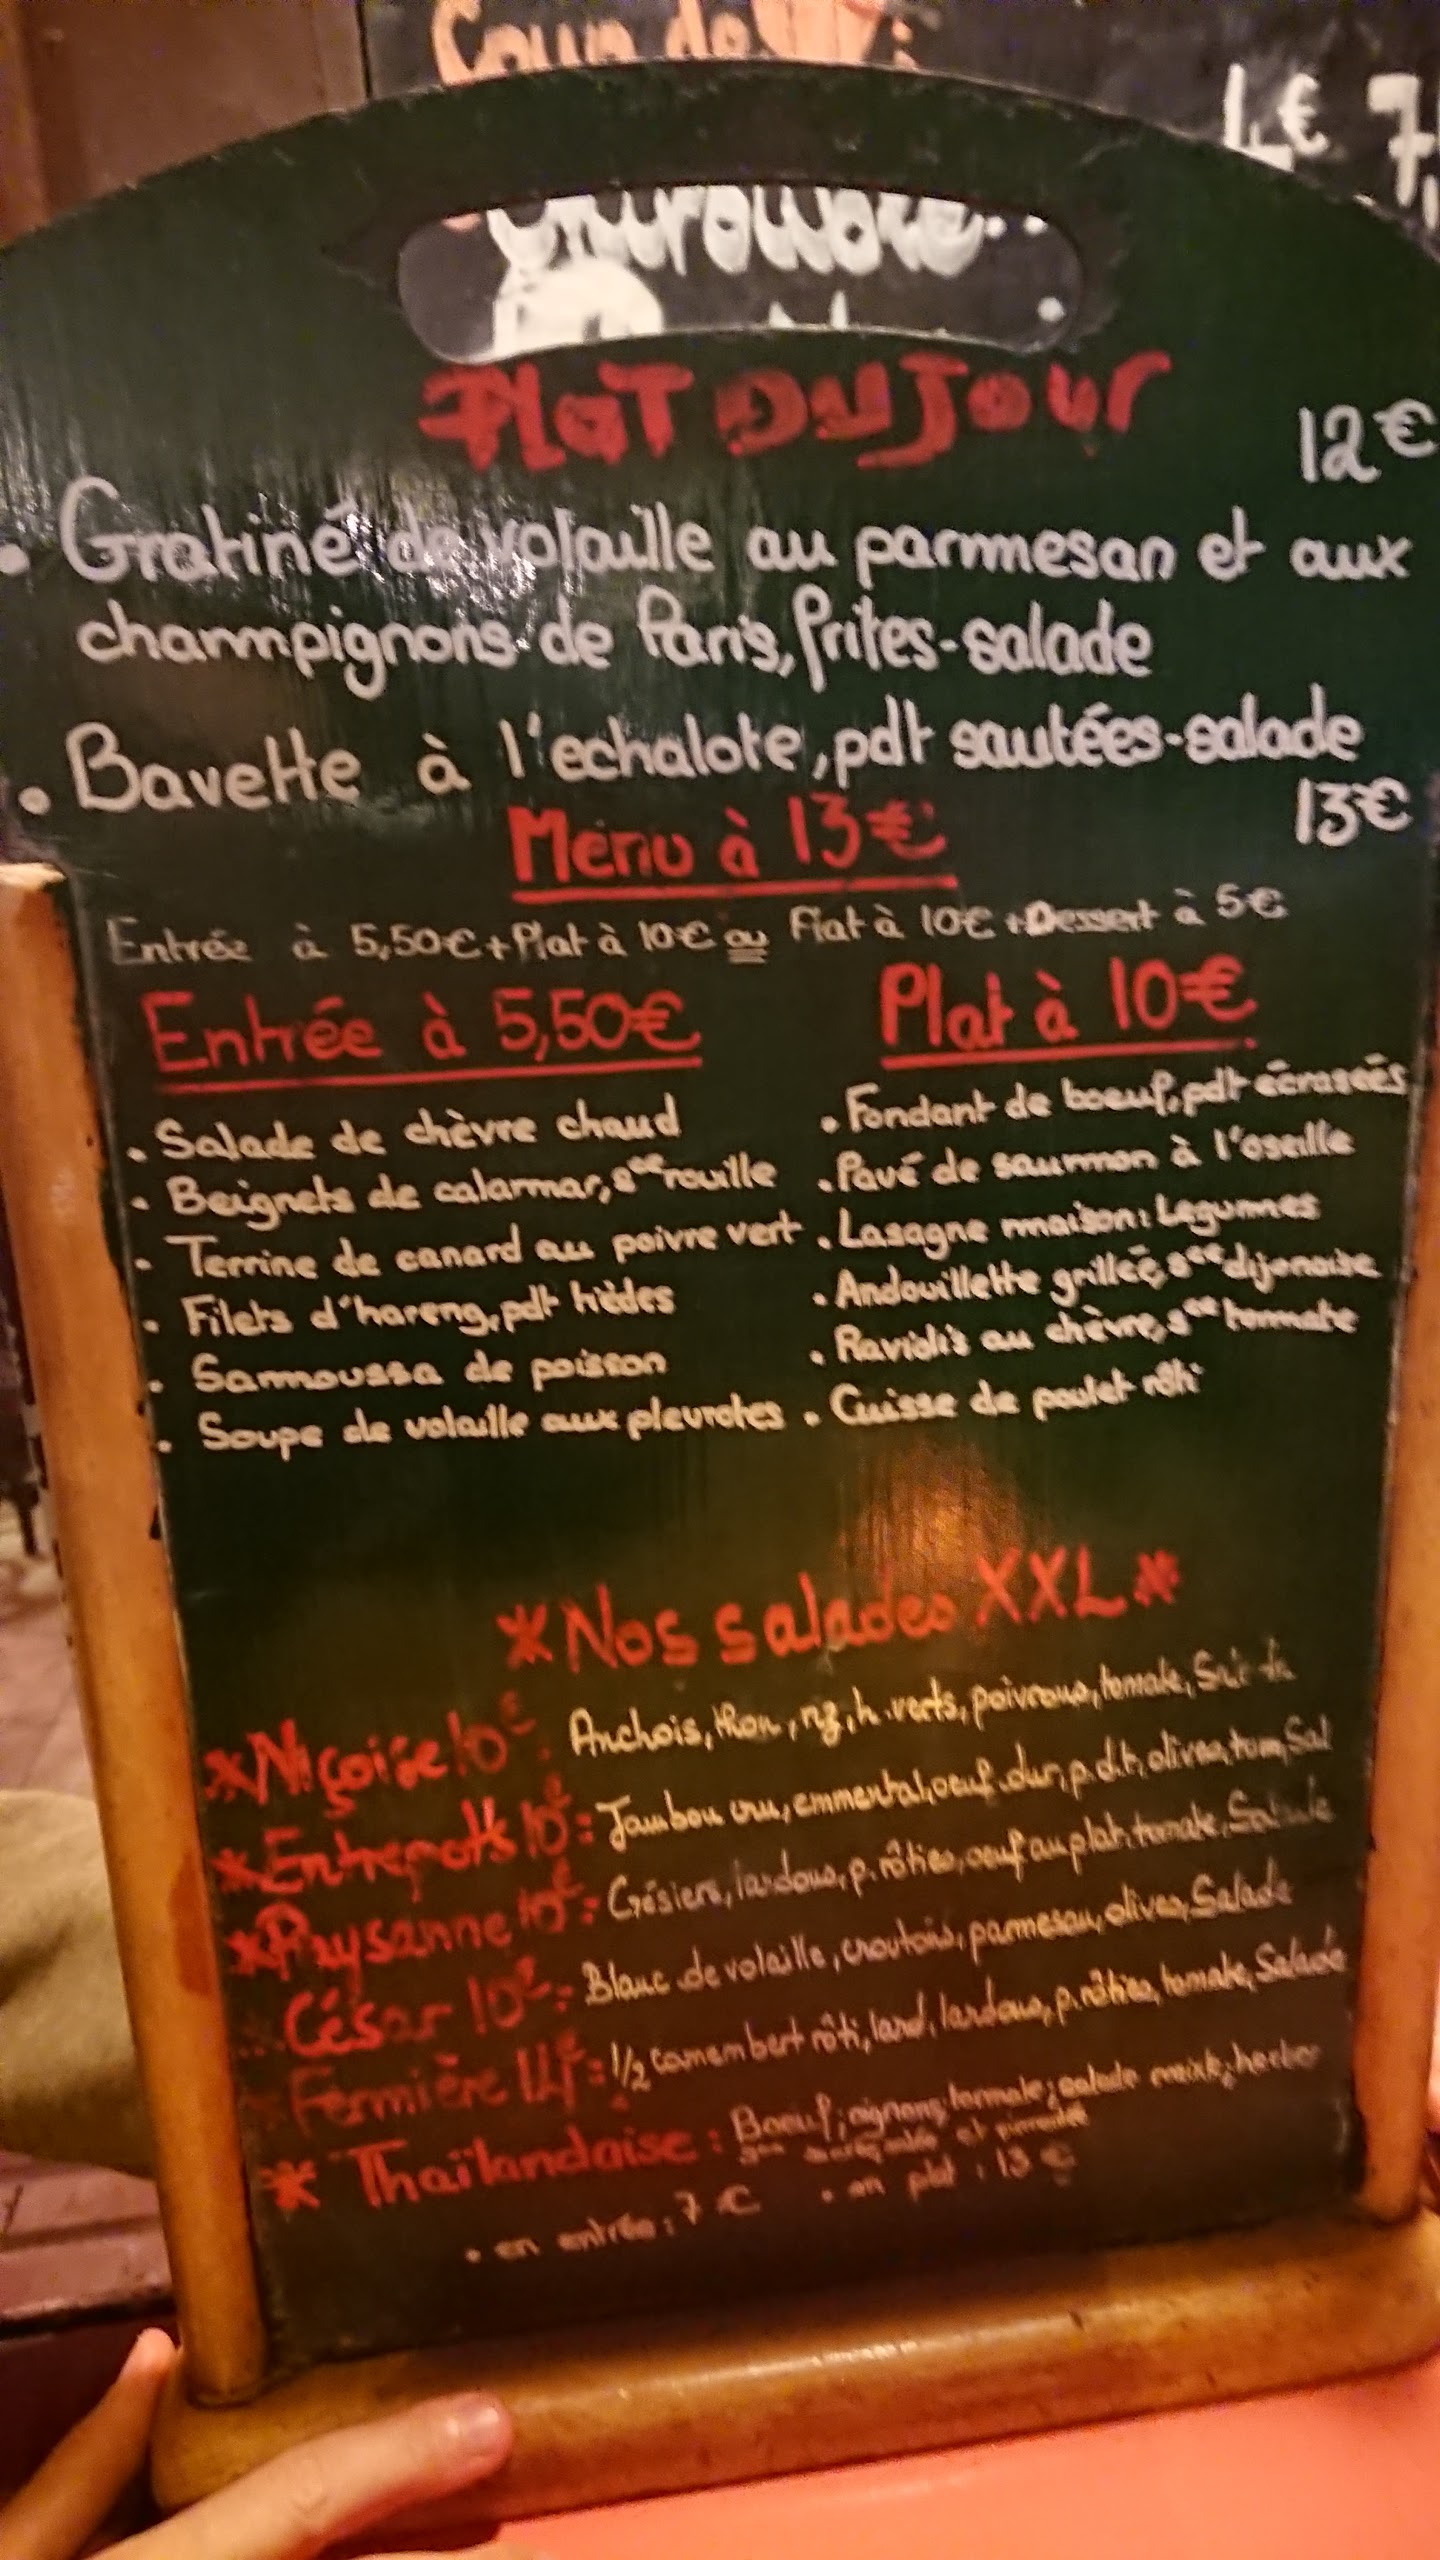 Coup de
4€ 7
PLAT DU JOUR
12€
• Gratiné de volaille au parmesan et aux
champignons de Paris, frites-salade
• Bavette à l'echalote, pdt sautées-salade
13€
Menu à 13€
Entrée à 5,50€ + Plat à 10€ ou Plat à 10€ + Dessert à 5€
Entrée à 5,50€
• Salade de chèvre chaud
• Beignets de calamar, sce rouille
• Terrine de canard au poivre vert
• Filets d'hareng, pdt tièdes
• Samoussa de poisson
• Soupe de volaille aux pleurotes
Plat à 10€
• Fondant de boeuf, pdt écrasées
• Pavé de saumon à l'oseille
• Lasagne maison: Legumes
• Andouillette grillée, sce dijonaise
• Raviolis au chèvre, sce tomate
• Cuisse de poulet rôti
* Nos salades XXL *
* Niçoise 10€: Anchois, thon, riz, h.verts, poivrons, tomate,
* Entrepotts 10€: Jambon cru, emmental, oeuf dur, p.d.t, olives, tom, Sal
* Paysanne 10€: Gésiers, lardons, p.rôties, oeuf au plat, tomate, Salade
César 10€: Blanc de volaille, croutons, parmesan, olives, Salade
Fermière 11€: 1/2 camembert rôti, lard, lardons, p.rôties, tomate, Salade
* Thaïlandaise: Boeuf, oignons, tomate, salade mixte, herbes
et pimentée
• en entrée: 7€ • en plat: 13€